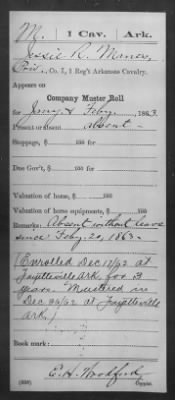 M. | 1 Cav. | Ark.
Jessie R. Maness
Priv., Co. I, 1 Reg't Arkansas Cavalry.
Appears on
Company Muster Roll
for Jany & Feby, 1863.
Present or absent absent
Stoppage, $ 100 for
Due Gov't, $ 100 for
Valuation of horse, $ 100
Valuation of horse equipments, $ 100
Remarks: Absent without leave
since Feby. 20, 1863.
(Enrolled Dec 12/62 at
Fayetteville Ark, for 3
years. Mustered in
Dec 26/62 at Fayetteville
Ark.)
Book mark:
E. H. Woodford
(358) Copyist.